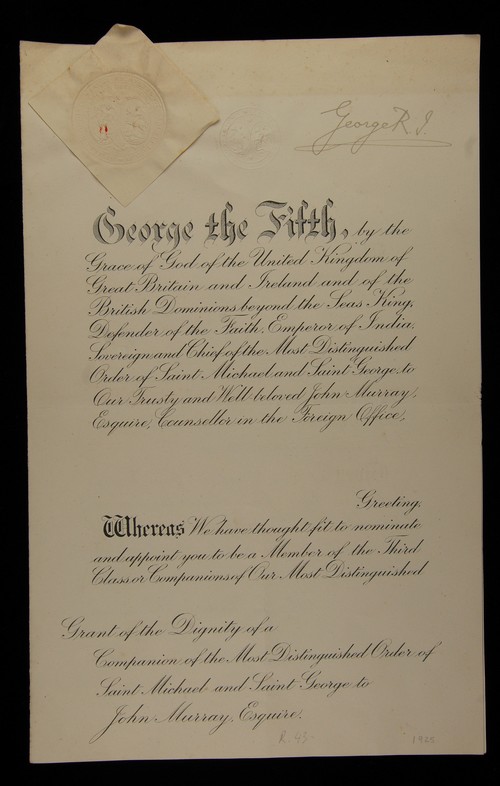 George R. I.
George the Fifth, by the
Grace of God, of the United Kingdom of
Great Britain and Ireland and of the
British Dominions beyond the Seas King,
Defender of the Faith, Emperor of India,
Sovereign and Chief of the Most Distinguished
Order of Saint Michael and Saint George, to
Our Trusty and Well beloved John Murray,
Esquire, Counsellor in the Foreign Office,
Greeting,
Whereas We have thought fit to nominate
and appoint you to be a Member of the Third
Class or Companions of Our Most Distinguished
Grant of the Dignity of a
Companion of the Most Distinguished Order of
Saint Michael and Saint George to
John Murray, Esquire.